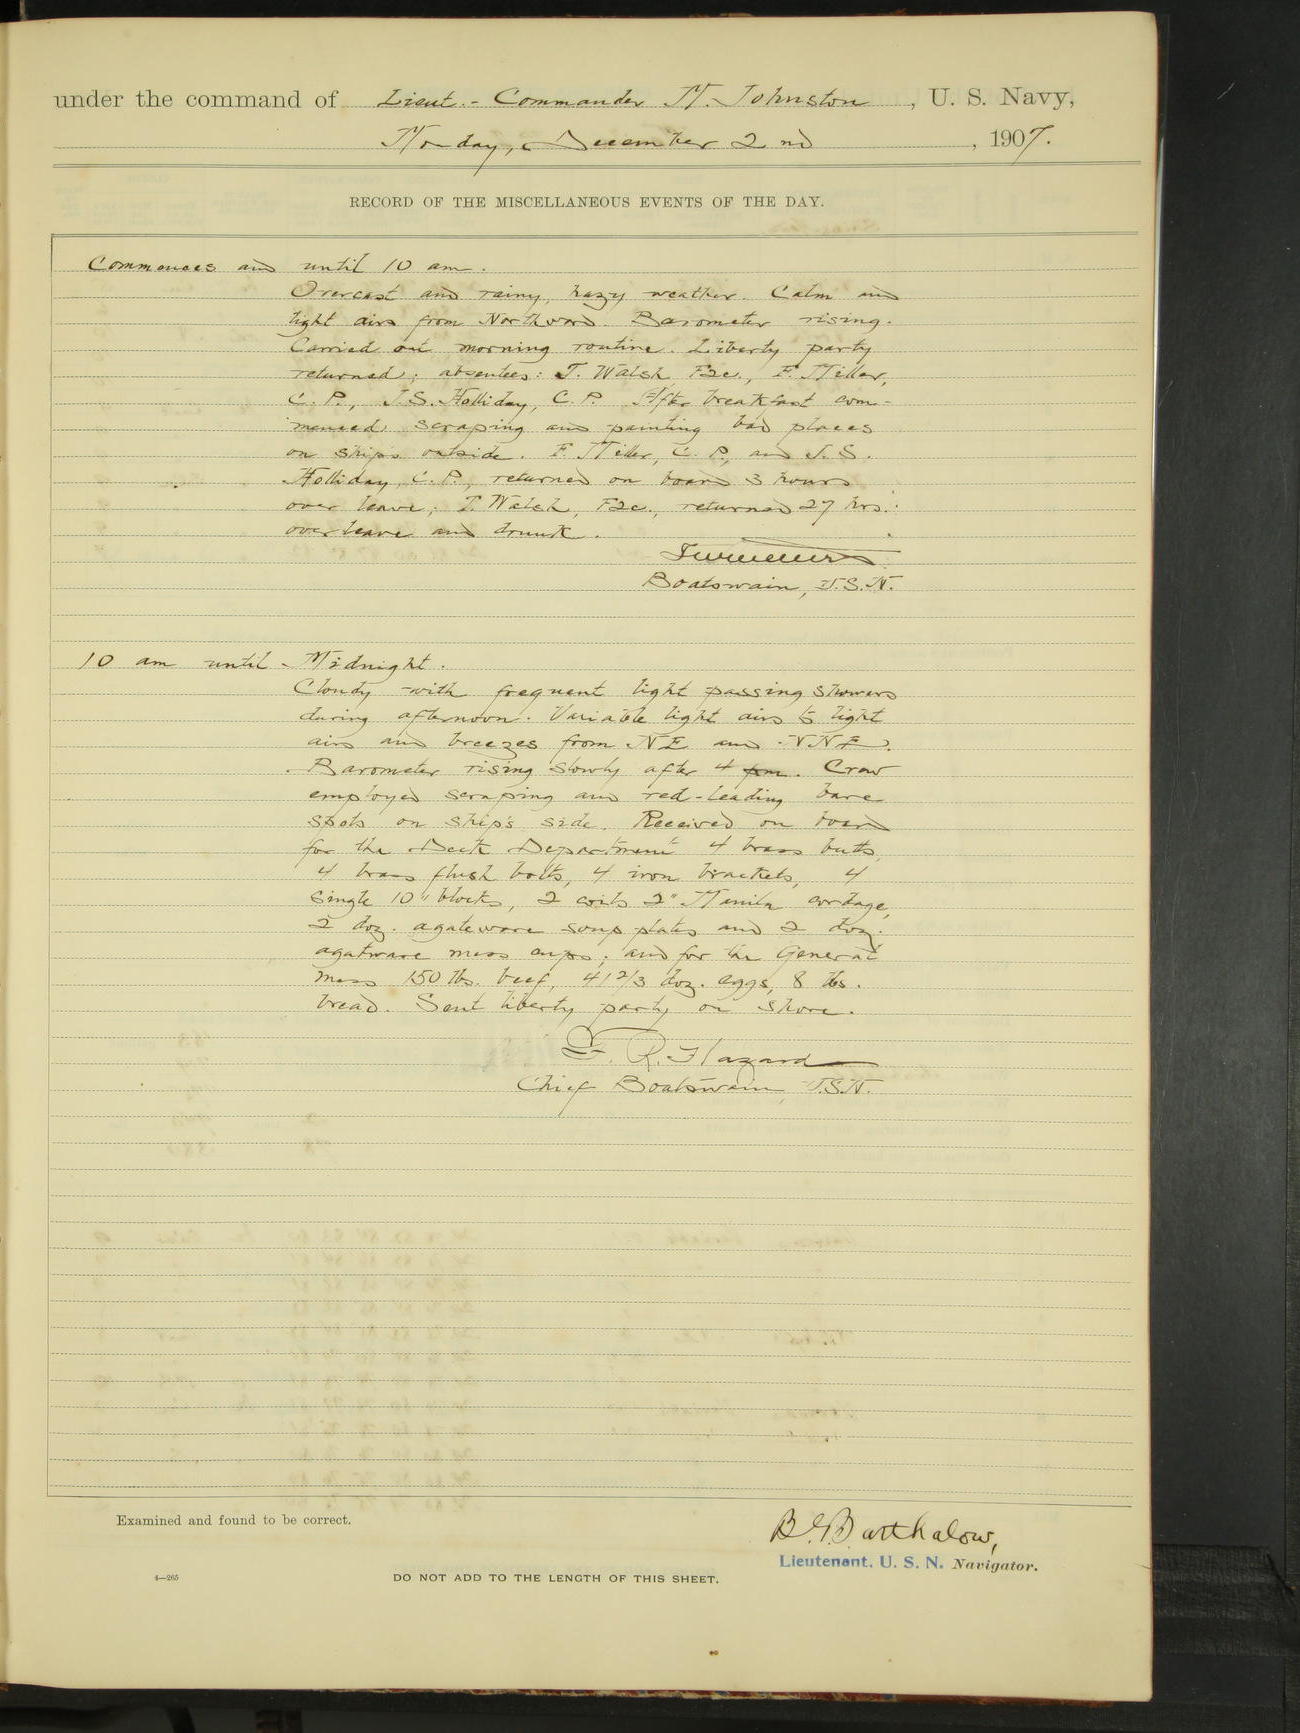 under the command of Lieut.-Commander M. Johnston, U. S. Navy,
Monday, December 2nd, 1907.
RECORD OF THE MISCELLANEOUS EVENTS OF THE DAY.
Commences and until 10 am.
Overcast and rainy, hazy weather. Calm and
light airs from Northward. Barometer rising.
Carried out morning routine. Liberty party
returned; absentees: T. Walsh F2c., F. Miller,
C. P., J. S. Holliday, C. P. After breakfast com-
menced scraping and painting bad places
on ships outside. F. Miller, C. P., and J. S.
Holliday, C. P., returned on board 3 hours
over leave; T. Walsh, F2c., returned 27 hrs.
over leave and drunk.
Boatswain, U.S.N.
10 am until Midnight.
Cloudy with frequent light passing showers
during afternoon. Variable light airs to light
airs and breezes from NE and NNE.
Barometer rising slowly after 4 pm. Crew
employed scraping and red-leading bare
spots on ship's side. Received on board
for the Deck Department 4 brass butts,
4 brass flush bolts, 4 iron brackets, 4
single 10" blocks, 2 coils 2" Manila cordage,
2 doz. agateware soup plates and 2 doz.
agatware mess cups; and for the General
mess 150 lbs. beef, 41 2/3 doz. eggs, 8 lbs.
bread. Sent liberty party on shore.
F. R. Hazard
Chief Boatswain, U.S.N.
Examined and found to be correct.
B G Barthalow,
Lieutenant, U. S. N. Navigator.
4—265
DO NOT ADD TO THE LENGTH OF THIS SHEET.